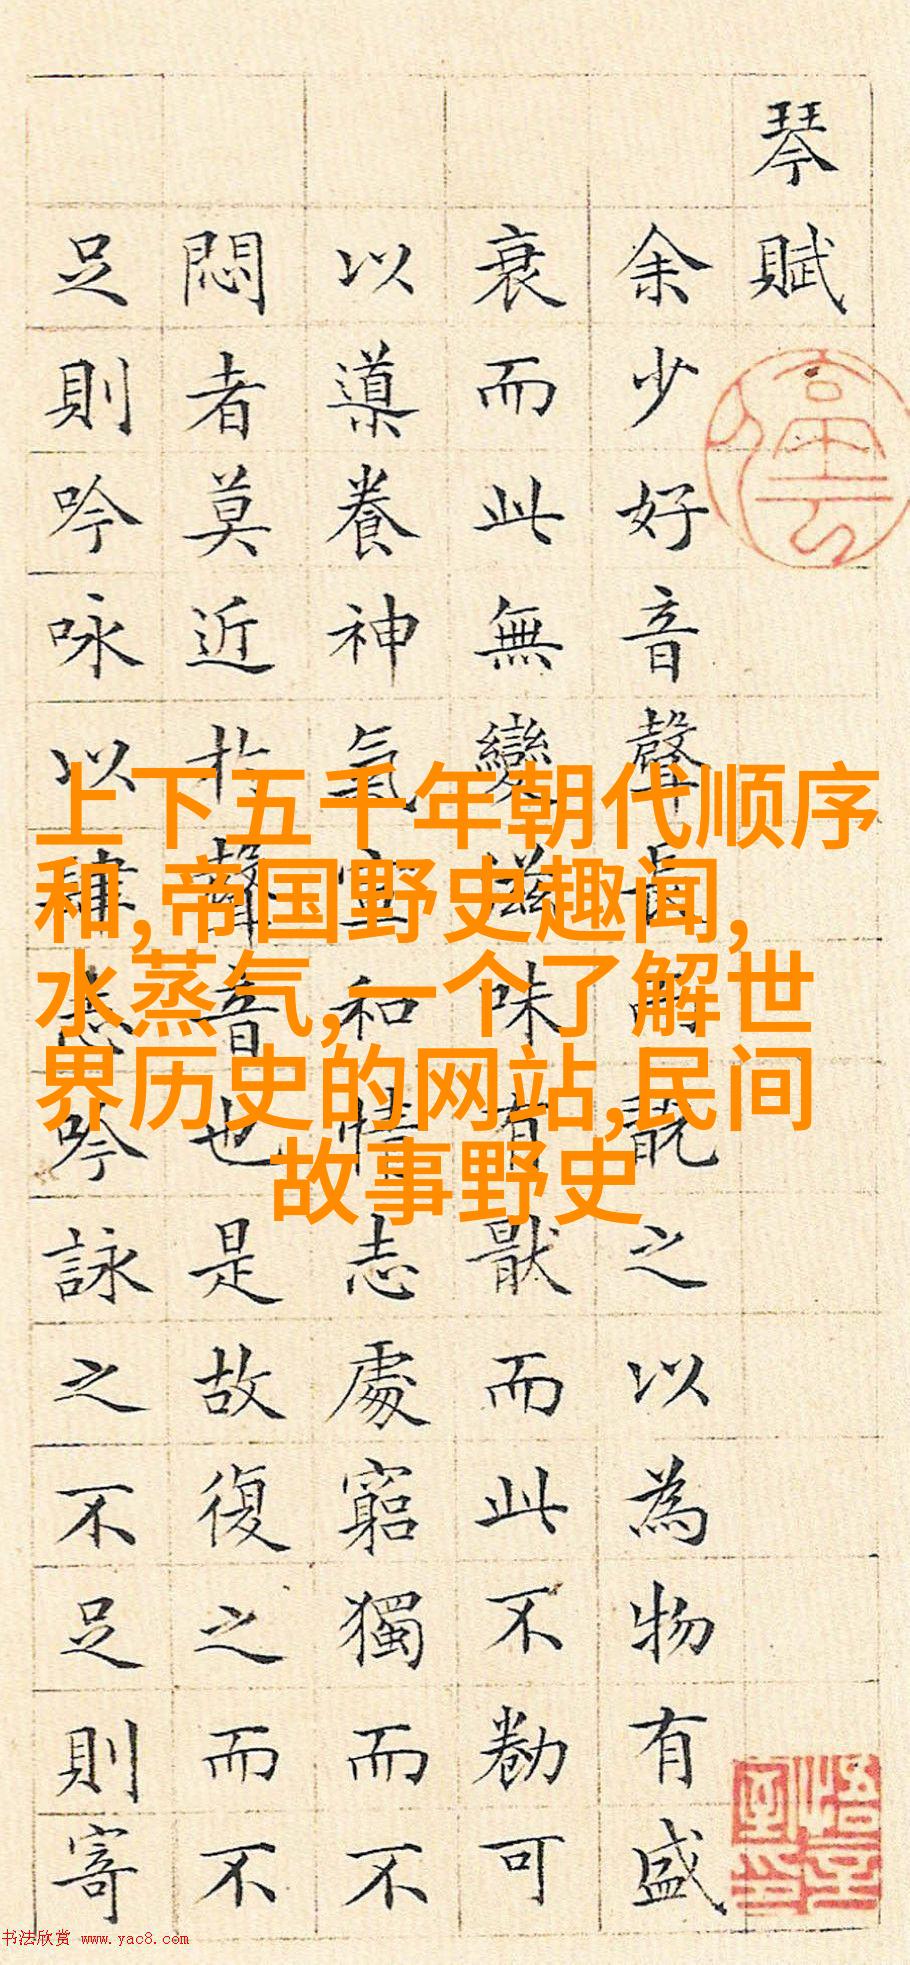 琴賦
余少好音聲長而翫之以為物有盛
衰而此無變滋味有猒而此不勌可
以導養神氣宣和情志處窮獨而不
悶者莫近扵聲音也是故復之而不
足則吟咏以肆志吟詠之不足則寄
上下五千年朝代顺序
和,帝国野史趣闻,
水蒸气,一个了解世
界历史的网站,民间
故事野史
书法欣赏 www.yac8.com